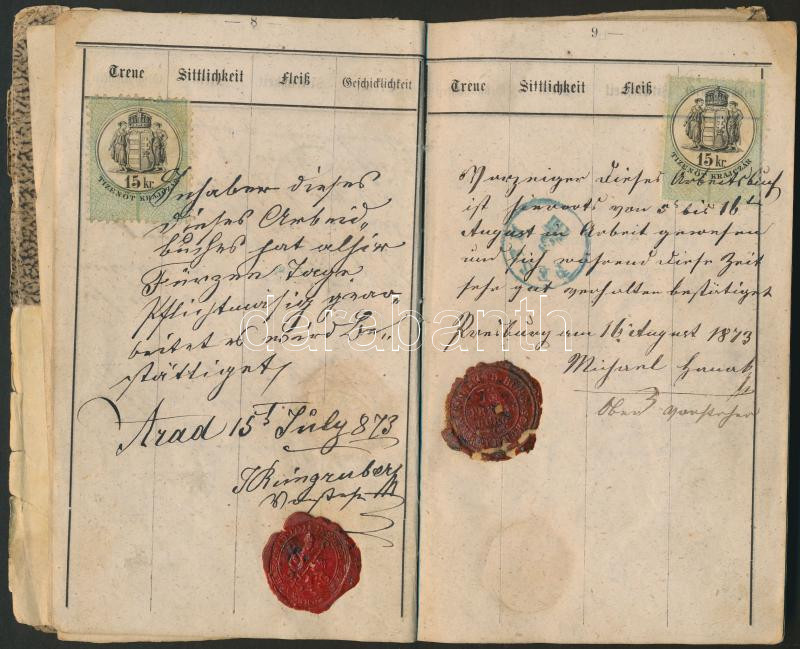 — 8 —
Treue Sittlichkeit Fleiß Geschicklichkeit
15 kr.
TIZENÖT KRAJCZÁR
Inhaber dieses
dieses Arbeid„
buches hat alhir
Tage
Pflichtmäsig gear
beitet es wird be„
stättiget
Arad 15t July 873
— 9 —
Treue Sittlichkeit Fleiß
15 kr.
TIZENÖT KRAJCZÁR
Vorzeiger dieses Arbeitsbuch
ist hierorts von 5t bis 16ten
August in Arbeit gewesen
und sich während diese Zeit
sehr gut verhalten bestätiget
am 16 August 1873
Michael Hanak
Ober Vorsteher
darabanth